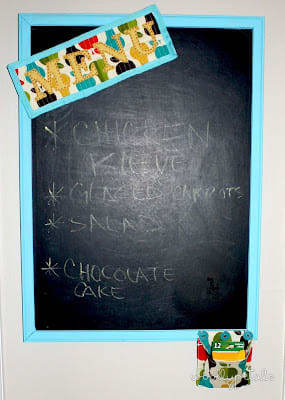 MENU
* CHICKEN
KIEVE
* GLAZED CARROTS
* SALAD
* CHOCOLATE
CAKE
12